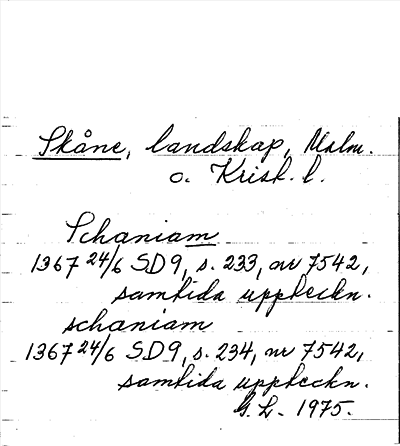 Skåne, landskap, Malm.
o. Krist. l.
Schaniam
1367 24/6 SD9, s. 233, nr 7542,
samtida uppteckn.
schaniam
1367 24/6 SD9, s. 234, nr 7542,
samtida uppteckn.
G. L. 1975.